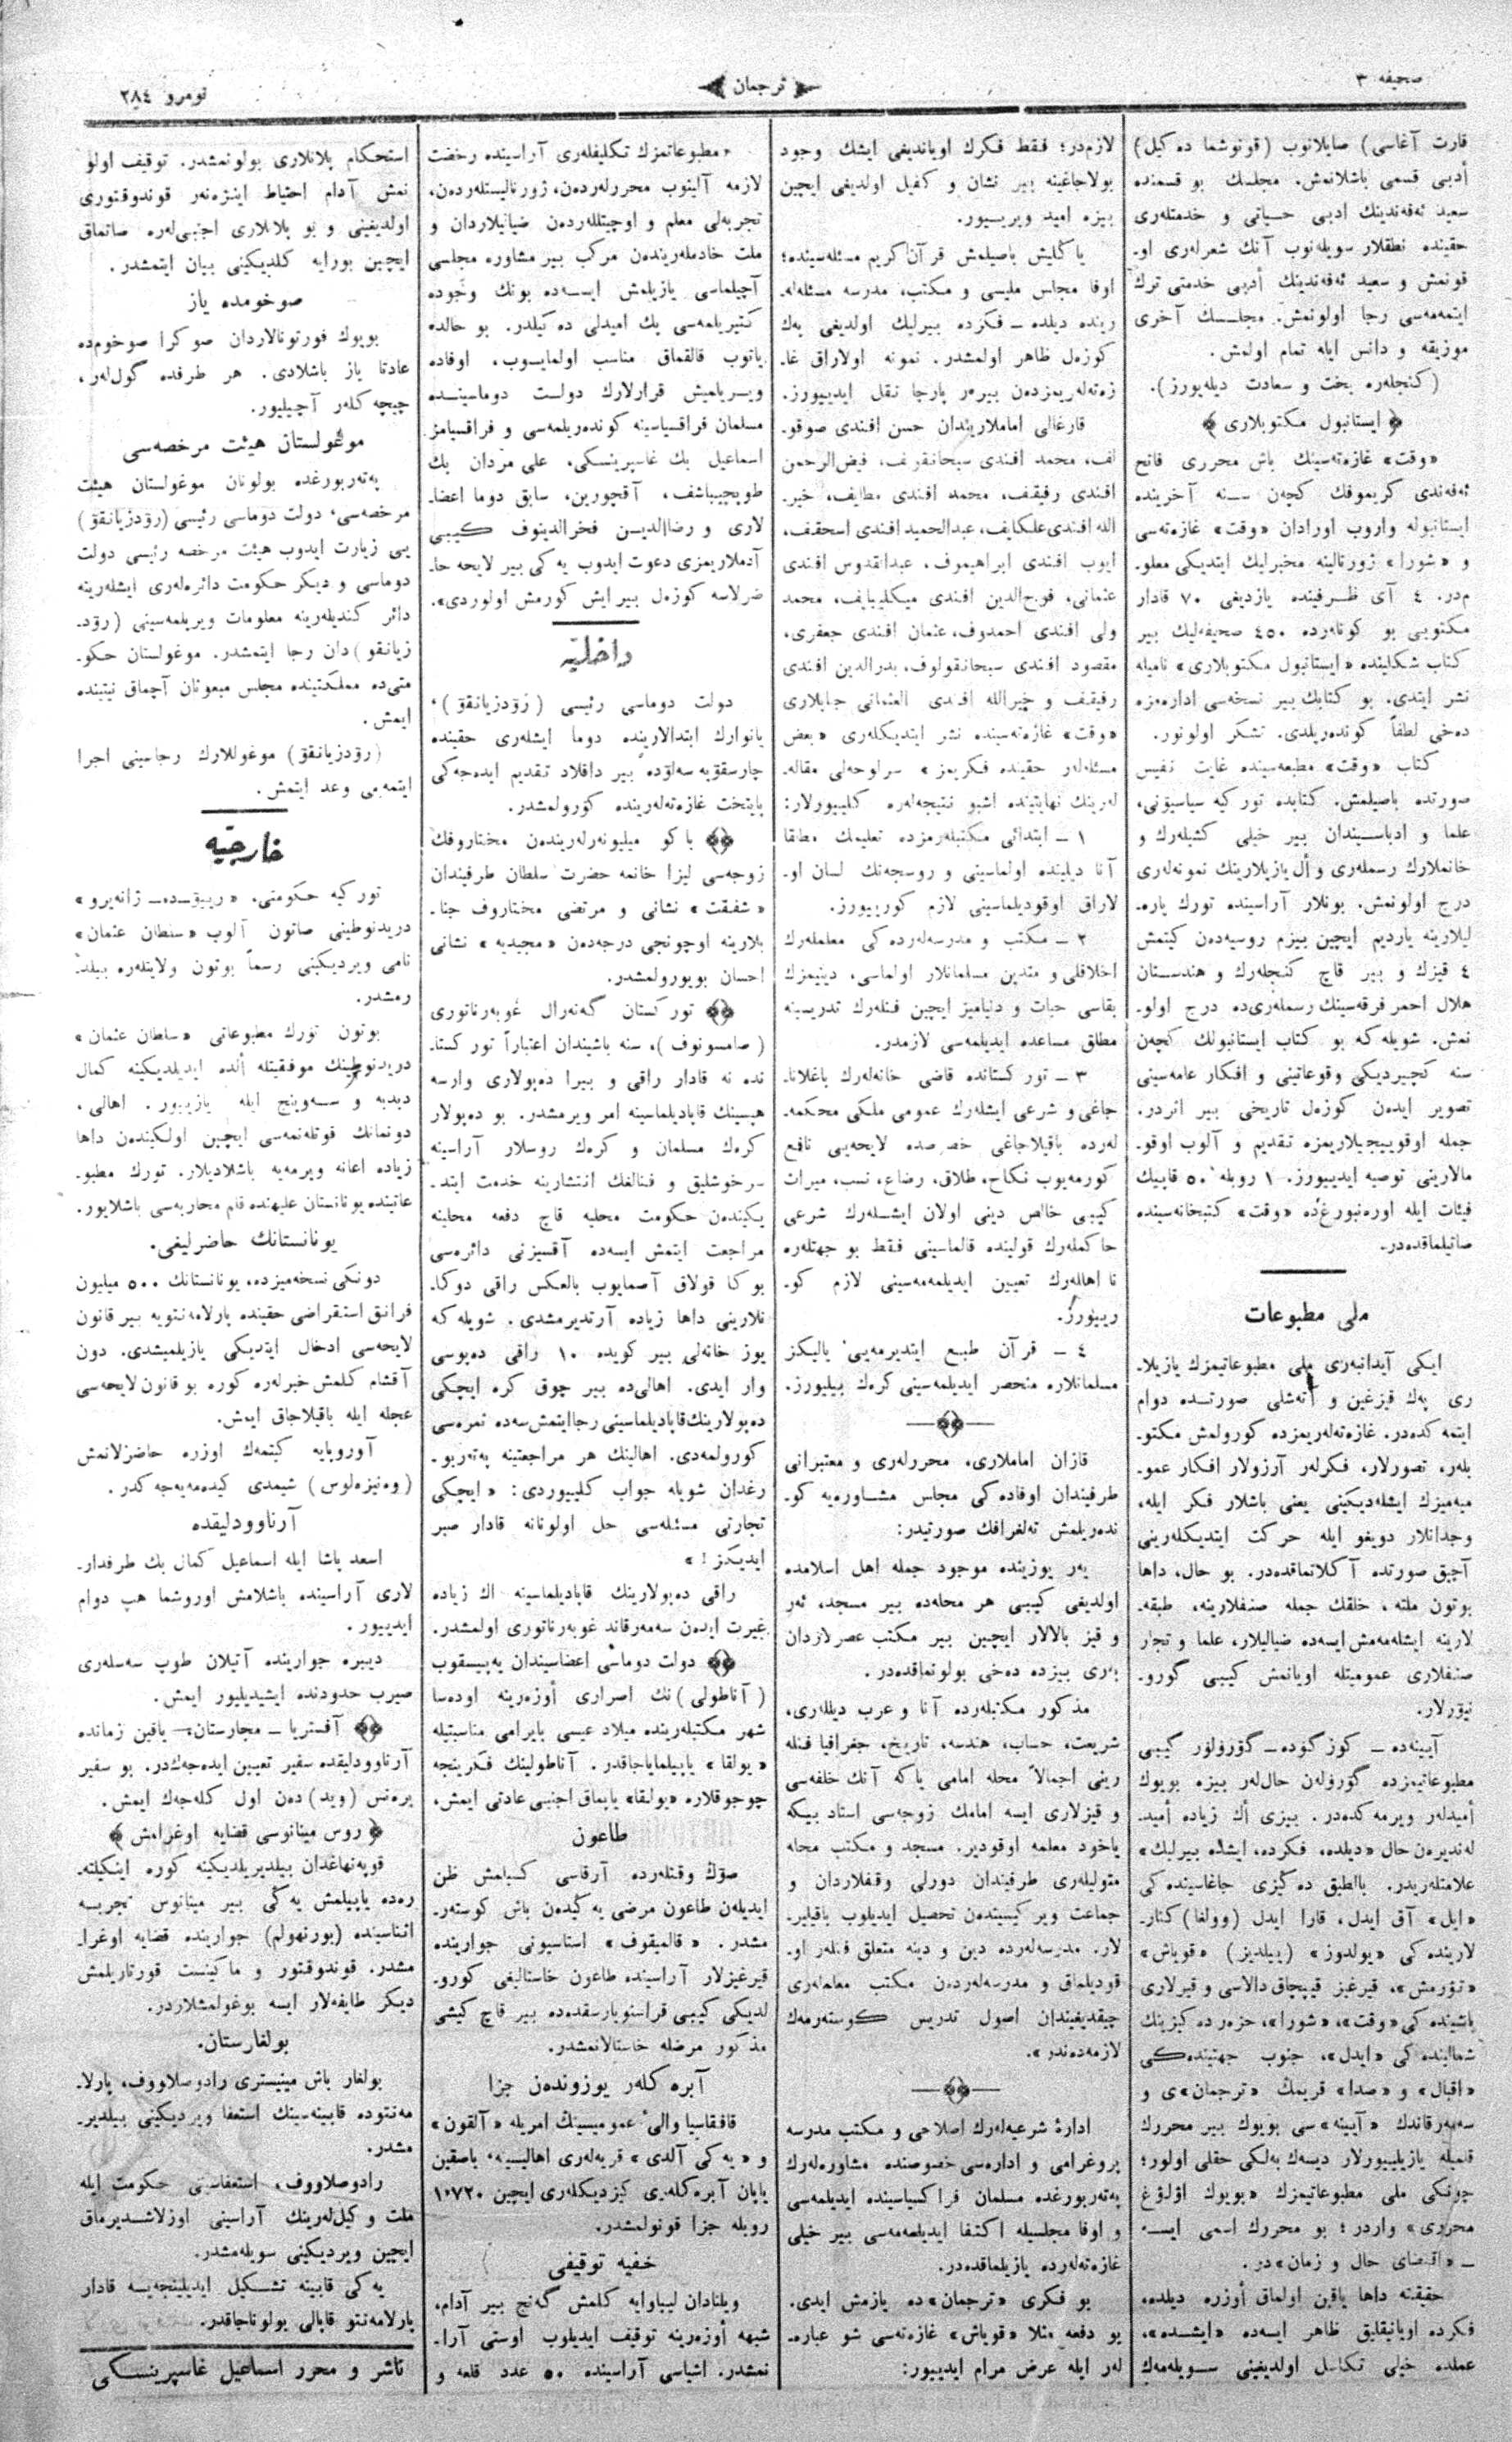 صحیفه ۳
ترجمان
نومرو ۲۸٤
قارت آغاسی) صایلانوب (قونوشما ده کیل)
أدبی قسمی باشلانمش. مجلسك بو قسمنده
سعید ئەفەندینك ادبی حسیاتی و خدمتلەری
حقینده نطقلار سویلەنوب آنك شعرلەری او۔
قونمش و سعید ئەفەندینك أدبی خدمتی ترك
ایتمەمەسی رجا اولونمش. مجلسك آخری
موزیقه و دانس ایله تمام اولمش.
(کنجلەره بخت و سعادت دیلەیورز).
﴿ ایستانبول مکتوبلاری ﴾
«وقت» غازەتەسینك باش محرری فاتح
ئەفەندی کریموفك کچەن سنه آخرینده
ایستانبوله واروب اورادان «وقت» غازەتەسی
و «شورا» ژورنالینه مخبرلیك ایتدیکی معلو۔
مدر. ٤ آی ظرفینده یازدیغی ۷۰ قادار
مکتوبی بو کونلەرده ٤٥۰ صحیفەلیك بیر
کتاب شکلینده «ایستانبول مکتوبلاری» نامیله
نشر ایتدی. بو کتابك بیر نسخەسی ادارەمزه
دەخی لطفاً کوندەریلدی. تشکر اولونور.
کتاب «وقت» مطبعەسینده غایت نفیس
صورتده باصیلمش. کتابده تورکیه سیاسیونی،
علما و ادباسیندان بیر خیلی کشیلەرك و
خانملارك رسملەری و أل یازیلارینك نمونەلەری
درج اولونمش. بونلار آراسینده تورك یارە۔
لیلارینه یاردیم ایچین بیزم روسیەدەن کیتمش
٤ قیزك و بیر قاچ کنجلەرك و هندستان
هلال احمر فرقەسینك رسملەری‌ده درج اولو۔
نمش. شویلەکه بو کتاب ایستانبولك کچەن
سنه کچیردیکی وقوعاتینی و افکار عامەسینی
تصویر ایدەن کوزەل تاریخی بیر اثردر.
جمله اوقوییجیلاریمزه تقدیم و آلوب اوقو۔
مالارینی توصیه ایدییورز. ۱ روبله ٥۰ قاپیك
فیئات ایله اورەنبورغ‌ده «وقت» کتبخانەسینده
صاتیلماقدەدر.
ملی مطبوعات
ایکی آیدانبەری ملی مطبوعاتیمزك یازیلا۔
ری پەك قیزغین و آتەشلی صورتده دوام
ایتمەکدەدر. غازەتەلەریمزده کورولمش مکتو۔
بلەر، تصورلار، فکرلەر آرزولار افکار عمو۔
میەمیزك ایشلەدیکینی یعنی باشلار فکر ایله،
وجدانلار دویغو ایله حرکت ایتدیکلەرینی
آچیق صورتده آکلاتماقدەدر. بو حال، داها
بوتون ملته، خلقك جمله صنفلارینه، طبقە۔
لارینه ایشلەمەمش ایسەده ضیالیلار، علما و تجار
صنفلاری عمومیتله اویانمش کیبی گورو۔
نیۆرلار.
آیینەده ــ کوزگوده ــ گۆرولۆر کیبی
مطبوعاتیمزده گۆرولەن حال‌لەر بیزه بویوك
أمیدلەر ویرمەکدەدر. بیزی أك زیاده أمید۔
لەندیرەن حال «دیلده، فکرده، ایشده بیرلیك»
علامتلەریدر. باالطبق دەکزی جاغاسیندەکی
«ایل» آق ایدل، قارا ایدل (وولغا) کنار۔
لاریندەکی «یولدوز» (ییلدیز) «قویاش»
«تۆرمش»، قیرغیز قیپچاق دالاسی و قیرلاری
باشیندەکی «وقت»، «شورا»، حزەر دەکیزینك
شمالیندەکی «ایدل»، جنوب جهتیندەکی
«اقبال» و «صدا» قریمك «ترجمان»ی و
سەمەرقاندك «آیینه»سی بویوك بیر محررك
قلمیله یازیلییورلار دیسەك بەلکی حقلی اولور؛
چونکی ملی مطبوعاتیمزك «بویوك اۆلۆغ
محرری» واردر؛ بو محررك اسمی ایسه
ــ «اقتضای حال و زمان»در.
حقیقته داها یاقین اولماق أوزره دیلده،
فکرده اویانیقلیق ظاهر ایسەده «ایشده»،
عملده خیلی تکاسل اولدیغینی سویلەمەك
لازمدر؛ فقط فکرك اویاندیغی ایشك وجود
بولاجاغینه بیر نشان و کفیل اولدیغی ایچین
بیزه امید ویریـیور.
یاکلیش باصیلمش قرآن کریم مسئلەسینده؛
اوفا مجلس ملیسی و مکتب، مدرسه مسئلەلە۔
رینده دیلده ــ فکرده بیرلیك اولدیغی پەك
کوزەل ظاهر اولمشدر. نمونه اولاراق غا۔
زەتەلەریمزدەن بیرەر پارچا نقل ایدییورز.
قارغالی اماملاریندان حسن افندی صوقو۔
لف، محمد افندی سبحانقولف، فیض‌الرحمن
افندی رفیقف، محمد افندی مطایف، خیر۔
الله افندی علکایف، عبدالحمید افندی اسحقف،
ایوب افندی ابراهیموف، عبدالقدوس افندی
عثمانی، فوح‌الدین افندی میکلیبایف، محمد
ولی افندی احمدوف، عثمان افندی جعفری،
مقصود افندی سبحانقولوف، بدرالدین افندی
رفیقف و خیرالله افندی العثمانی جابلاری
«وقت» غازەتەسینده نشر ایتدیکلەری «بعض
مسئلەلەر حقینده فکریمز» سرلوحەلی مقاله۔
لەرینك نهایتینده اشبو نتیجەلەره کلییورلار:
۱ ــ ابتدائی مکتبلەرمزده تعلیمك مطلقا
آنا دیلینده اولماسینی و روسجەنك لسان او۔
لاراق اوقودیلماسینی لازم کورییورز.
۲ ــ مکتب و مدرسەلەردەکی معلملەرك
اخلاقلی و متدین مسلمانلار اولماسی، دینیمزك
بقاسی حیات و دنیامیز ایچین فنلەرك تدریسینه
مطلق مساعده ایدیلمەسی لازمدر.
۳ ــ تورکستانده قاضی خانەلەرك باغلانا۔
جاغی و شرعی ایشلەرك عمومی ملکی محکمە۔
لەرده باقیلاجاغی خصوصده لایحەیی نافع
کورمەیوب نکاح، طلاق، رضاع، نسب، میراث
کیبی خالص دینی اولان ایشلەرك شرعی
حاکملەرك قولینده قالماسینی فقط بو جهتلەره
نا اهللەرك تعیین ایدیلمەمەسینی لازم کو۔
رییورز.
٤ ــ قرآن طبع ایتدیرمەیی یالیکز
مسلمانلاره منحصر ایدیلمەسینی کرەك بیلیورز.
قازان اماملاری، محررلەری و معتبرانی
طرفیندان اوفادەکی مجلس مشاورەیه کو۔
ندەریلمش تەلغرافك صورتیدر:
یەر یوزینده موجود جمله اهل اسلامده
اولدیغی کیبی هر محلەده بیر مسجد، ئەر
و قیز بالالار ایچین بیر مکتب عصرلازدان
بەری بیزده دەخی بولونماقدەدر.
مذکور مکتبلەرده آنا و عرب دیللەری،
شریعت، حساب، هندسه، تاریخ، جغرافیا فنلە
رینی اجمالاً محله امامی یاکه آنك خلفەسی
و قیزلاری ایسه امامك زوجەسی استاد بیکه
یاخود معلمه اوقودیر. مسجد و مکتب محله
متولیلەری طرفیندان دورلی وقفلاردان و
جماعت ویرکیسیندن تحصیل ایدیلوب باقیلیر۔
لار. مدرسەلەرده دین و دینه متعلق فنلەر او۔
قودیلماق و مدرسەلەردەن مکتب معلملەری
چیقدیغیندان اصول تدریس کوستەرمەك
لازمەدەندر».
ادارهٔ شرعیەلەرك اصلاحی و مکتب مدرسه
پروغرامی و ادارەسی خصوصنده مشاورەلەرك
پەتەربورغده مسلمان فراکسیاسینده ایدیلمەسی
و اوفا مجلسیله اکتفا ایدیلمەمەسی بیر خیلی
غازەتەلەرده یازیلماقدەدر.
بو فکری «ترجمان»ده یازمش ایدی.
بو دفعه مثلا «قویاش» غازەتەسی شو عباره۔
لەر ایله عرض مرام ایدییور:
«مطبوعاتمزك تکلیفلەری آراسینده رخصت
لازمه آلینوب محررلەردەن، ژورنالیستلەردەن،
تجربەلی معلم و اوچیتللەردەن ضیائیلاردان و
ملت خادملەریندەن مرکب بیر مشاوره مجلسی
آچیلماسی یازیلمش ایسەده بونك وجوده
کتیریلمەسی پك امیدلی دەکیلدر. بو حالده
یاتوب قالقماق مناسب اولمایـوب، اوفاده
ویریلمیش قرارلارك دولت دوماسینده
مسلمان فراقسیاسینه کوندەریلمەسی و فراقسیامز
اسماعیل بك غاسپرینسکی، علی مردان بك
طوپچیباشف، آقچورین، سابق دوما اعضا۔
لاری و رضاالدین فخرالدینوف کیبی
آدملاریمزی دعوت ایدوب یەکی بیر لایحه حا۔
ضرلاسه کوزەل بیر ایش کورمش اولوردی».
داخلیه
دولت دوماسی رئیسی (رۆدزیانقۆ)،
یانوارك ابتدالارینده دوما ایشلەری حقینده
چارسقویه سەلۆده بیر داقلاد تقدیم ایدەجەکی
پایتخت غازەتەلەرینده کۆرولمشدر.
باکو میلیونەرلەریندەن مختاروفك
زوجەسی لیزا خانمه حضرت سلطان طرفیندان
«شفقت» نشانی و مرتضی مختاروف جنا۔
بلارینه اوچونجی درجەدەن «مجیدیه» نشانی
احسان بویورولمشدر.
تورکستان گەنەرال غوبەرناتوری
(صامسونوف)، سنه باشیندان اعتباراً تورکستا۔
نده نه قادار راقی و بیرا دەپولاری وارسه
هپسینك قاپادیلماسینه امر ویرمشدر. بو دەپولار
کرەك مسلمان و کرەك روسلار آراسینه
سرخوشلیق و فنالغك انتشارینه خدمت ایتد۔
یکیندەن حکومت محلیه قاچ دفعه محلینه
مراجعت ایتمش ایسەده آقسیزنی دائرەسی
بوکا قولاق آصمایوب بالعکس راقی دوکا۔
نلارینی داها زیاده آرتدیرمشدی. شویلەکه
یوز خانەلی بیر کویده ۱۰ راقی دەپوسی
وار ایدی. اهالی‌ده بیر چوق کره ایچکی
دەپولارینك قاپادیلماسینی رجا ایتمش‌سەده ثمرەسی
کورولمەدی. اهالینك هر مراجعتینه پەتەربو۔
رغدان شویله جواب کلییوردی: «ایچکی
تجارتی مسئلەسی حل اولونانه قادار صبر
ایدیکز!»
راقی دەپولارینك قاپادیلماسینه اك زیاده
غیرت ایدەن سەمەرقاند غوبەرناتوری اولمشدر.
دولت دوماسی اعضاسیندان یەپیسقوپ
(آناطولی)نك اصراری أوزەرینه اودەسا
شهر مکتبلەرینده میلاد عیسی بایرامی مناسبتیله
«یولقا» یاپیلمایاجاقدر. آناطولینك فکرینجه
چوجوقلاره «یولقا» یاپماق اجنبی عادتی ایمش.
طاعون
صۆك وقتلەرده آرقاسی کسیلمش ظن
ایدیلەن طاعون مرضی یەکیدەن باش کوستەر۔
مشدر. «قالمیقوف» استاسیونی جوارینده
قیرغیزلار آراسینده طاعون خاستالیغی کورو۔
لدیکی کیبی قراسنویارسقده‌ده بیر قاچ کیشی
مذکور مرضله خاستالانمشدر.
آبرەکلەر یوزوندەن جزا
قافقاسیا والیٔ عمومیسینك امریله «آلقون»
و «یەکی آلدی» قریەلەری اهالیسینه، باصقین
یاپان آبرەکلەری کیزدیکلەری ایچین ۱۰۷۲۰
روبله جزا قونولمشدر.
خفیه توقیفی
ویلنادان لیباوایه کلمش گەنچ بیر آدام،
شبهه أوزەرینه توقیف ایدیلوب اوستی آرا۔
نمشدر. اشیاسی آراسینده ٥۰ عدد قلعه و
استحکام پلانلاری بولونمشدر. توقیف اولو
نمش آدام احتیاط اینژەنەر قوندوقتوری
اولدیغینی و بو پلانلاری اجنبی‌لەره صاتماق
ایچین بورایه کلدیکینی بیان ایتمشدر.
صوخومده یاز
بویوك فورتونالاردان صوکرا صوخوم‌ده
عادتا یاز باشلادی. هر طرفده گول‌لەر،
چیچەکلەر آچیلیور.
موغولستان هیئت مرخصەسی
پەتەربورغده بولونان موغولستان هیئت
مرخصەسی، دولت دوماسی رئیسی (رۆدزیانقۆ)
یی زیارت ایدوب هیئت مرخصه رئیسی دولت
دوماسی و دیکر حکومت دائرەلەری ایشلەرینه
دائر کندیلەرینه معلومات ویریلمەسینی (رۆد۔
زیانقو) دان رجا ایتمشدر. موغولستان حکو۔
متی‌ده مملکتینده مجلس مبعوثان آچماق نیتینده
ایمش.
(رۆدزیانقۆ) موغوللارك رجاسینی اجرا
ایتمەیی وعد ایتمش.
خارجیه
تورکیه حکومتی، «ریـیۆ۔ده۔ ژانەیرو»
دریدنوطینی صاتون آلوب «سلطان عثمان»
نامی ویردیکینی رسماً بوتون ولایتلەره بیلد۔
رمشدر.
بوتون تورك مطبوعاتی «سلطان عثمان»
دریدنوطینك موفقیتله ألده ایدیلدیکینه کمال
دبدبه و سەوینج ایله یازییور. اهالی،
دونمانك قوتلەنمەسی ایچین اولکیندەن داها
زیاده اعانه ویرمەیه باشلادیلار. تورك مطبو۔
عاتینده یونانستان علیهنده قلم محاربەسی باشلایور.
یونانستانك حاضرلیغی.
دونکی نسخەمیزده، یونانستانك ٥۰۰ میلیون
فرانق استقراضی حقینده پارلامەنتویه بیر قانون
لایحەسی ادخال ایتدیکی یازیلمیشدی. دون
آقشام کلمش خبرلەره کوره بو قانون لایحەسی
عجله ایله باقیلاجاق ایمش.
آوروپایه کیتمەك اوزره حاضرلانمش
(وەنیزەلوس) شیمدی کیدەمەیەجەکدر.
آرناوودلیقده
اسعد پاشا ایله اسماعیل کمال بك طرفدار۔
لاری آراسینده باشلامش اوروشما هپ دوام
ایدییور.
دیبره جوارینده آتیلان طوپ سەسلەری
صیرب حدودنده ایشیدیلیور ایمش.
آفستریا ــ مجارستان، یاقین زمانده
آرناوودلیقده سفیر تعیین ایدەجەكدر. بو سفیر
پرەنس (وید) دەن اول کلەجەك ایمش.
﴿ روس مینانوسی قضایه اوغرامش ﴾
قوپەنهاغدان بیلدیریلدیکینه کوره اینکیلتە۔
رەده یاپیلمش یەکی بیر مینانوس تجربه
اثناسینده (بورنهولم) جوارینده قضایه اوغرا۔
مشدر. قوندوقتور و ماکینست قورتاریلمش
دیکر طایفەلار ایسه بوغولمشلاردر.
بولغارستان.
بولغار باش مینیستری رادوصلاووف، پارلا۔
مەنتوده قابینەسینك استعفا ویردیکینی بیلدیر۔
مشدر.
رادوصلاووف، استعفاسینی حکومت ایله
ملت وکیل‌لەرینك آراسینی اوزلاشدیرماق
ایچین ویردیکینی سویلەمشدر.
یەکی قابینه تشکیل ایدیلینجەیه قادار
پارلامەنتو قاپالی بولوناجاقدر.
ناشر و محرر اسماعیل غاسپرینسکی